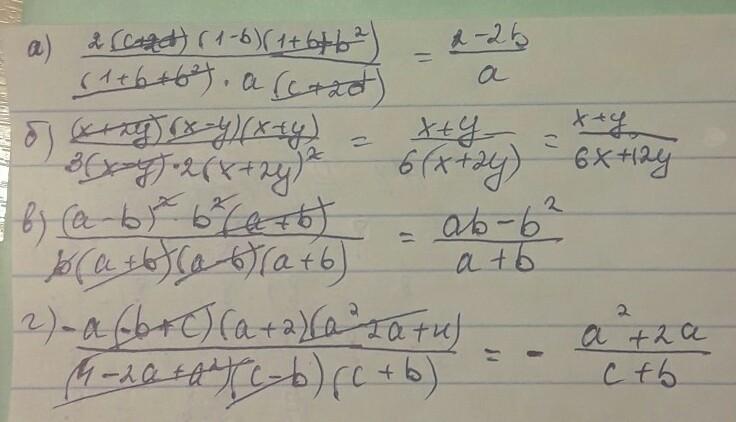 а) 2(c+2d)(1-b)(1+b+b²) / (1+b+b²)·a(c+2d) = 2-2b / a
б) (x+2y)(x-y)(x+y) / 3(x-y)·2(x+2y)² = x+y / 6(x+2y) = x+y / 6x+12y
в) (a-b)²·b²(a+b) / b(a+b)(a-b)(a+b) = ab-b² / a+b
г) -a(-b+c)(a+2)(a²-2a+4) / (4-2a+a²)(c-b)(c+b) = - a²+2a / c+b